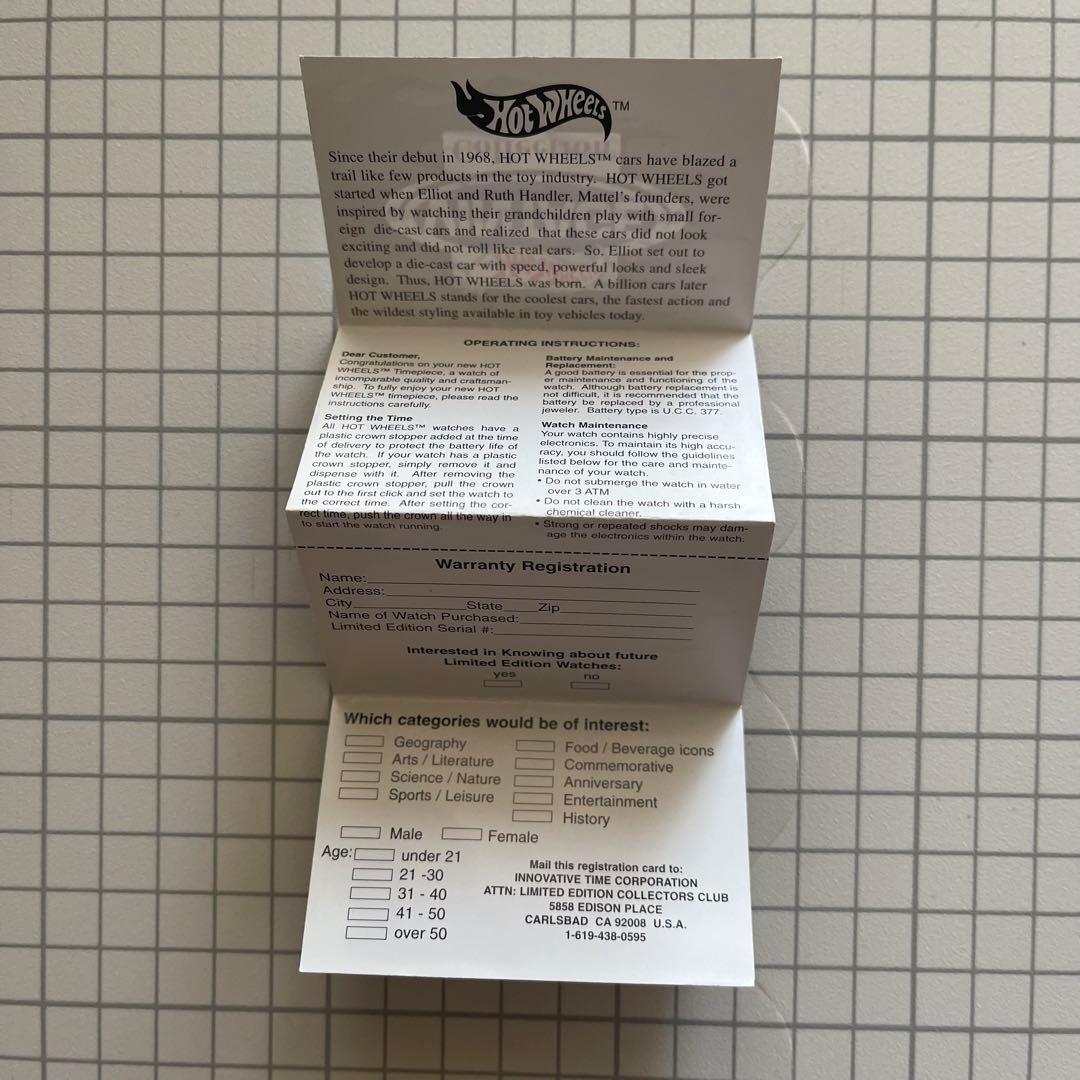 HOT WHEELS™
Since their debut in 1968, HOT WHEELS™ cars have blazed a
trail like few products in the toy industry. HOT WHEELS got
started when Elliot and Ruth Handler, Mattel's founders, were
inspired by watching their grandchildren play with small for-
eign die-cast cars and realized that these cars did not look
exciting and did not roll like real cars. So, Elliot set out to
develop a die-cast car with speed, powerful looks and sleek
design. Thus, HOT WHEELS was born. A billion cars later
HOT WHEELS stands for the coolest cars, the fastest action and
the wildest styling available in toy vehicles today.
OPERATING INSTRUCTIONS:
Dear Customer,
Congratulations on your new HOT
WHEELS™ Timepiece, a watch of
incomparable quality and craftsman-
ship. To fully enjoy your new HOT
WHEELS™ timepiece, please read the
instructions carefully.
Setting the Time
All HOT WHEELS™ watches have a
plastic crown stopper added at the time
of delivery to protect the battery life of
the watch. If your watch has a plastic
crown stopper, simply remove it and
dispense with it. After removing the
plastic crown stopper, pull the crown
out to the first click and set the watch to
the correct time. After setting the cor-
rect time, push the crown all the way in
to start the watch running.
Battery Maintenance and
Replacement:
A good battery is essential for the prop-
er maintenance and functioning of the
watch. Although battery replacement is
not difficult, it is recommended that the
battery be replaced by a professional
jeweler. Battery type is U.C.C. 377.
Watch Maintenance
Your watch contains highly precise
electronics. To maintain its high accu-
racy, you should follow the guidelines
listed below for the care and mainte-
nance of your watch.
• Do not submerge the watch in water
over 3 ATM
• Do not clean the watch with a harsh
chemical cleaner.
• Strong or repeated shocks may dam-
age the electronics within the watch.
Warranty Registration
Name:
Address:
City State Zip
Name of Watch Purchased:
Limited Edition Serial #:
Interested in Knowing about future
Limited Edition Watches:
yes no
Which categories would be of interest:
Geography
Arts / Literature
Science / Nature
Sports / Leisure
Food / Beverage icons
Commemorative
Anniversary
Entertainment
History
Male Female
Age: under 21
21 -30
31 - 40
41 - 50
over 50
Mail this registration card to:
INNOVATIVE TIME CORPORATION
ATTN: LIMITED EDITION COLLECTORS CLUB
5858 EDISON PLACE
CARLSBAD CA 92008 U.S.A.
1-619-438-0595